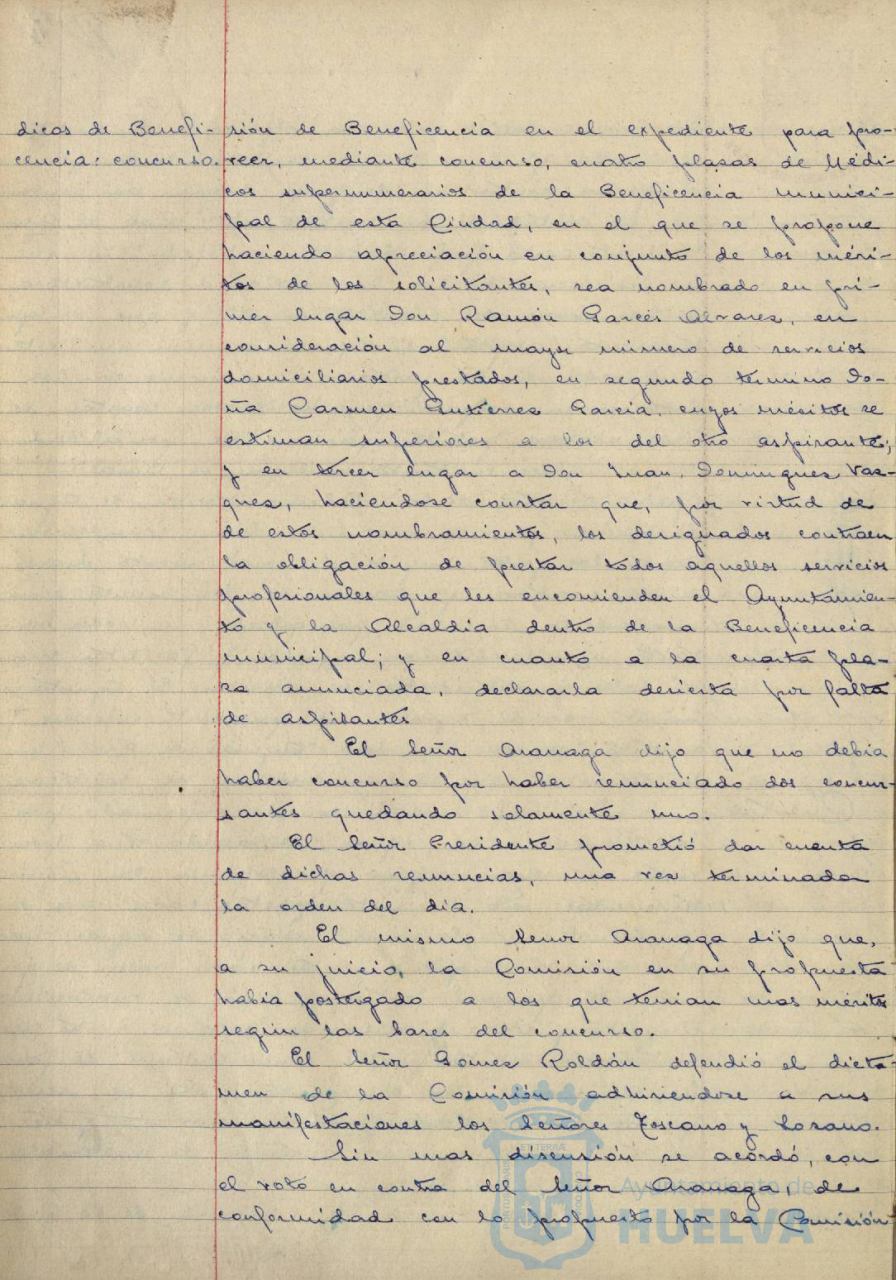 dicos de Benefi-
cencia: concurso.
sión de Beneficencia en el expediente para pro-
veer, mediante concurso, cuatro plazas de Médi-
cos supernumerarios de la Beneficencia munici-
pal de esta Ciudad, en el que se propone
haciendo apreciación en conjunto de los méri-
tos de los solicitantes, sea nombrado en pri-
mer lugar Don Ramón Garcés Alvarez, en
consideración al mayor número de servicios
domiciliarios prestados, en segundo termino Do-
ña Carmen Gutierrez Garcia, cuyos méritos se
estiman superiores a los del otro aspirante;
y en tercer lugar a Don Juan Dominguez Vaz-
quez, haciendose constar que, por virtud de
de estos nombramientos, los designados contraen
la obligación de prestar todos aquellos servicios
profesionales que les encomienden el Ayuntamien-
to y la Alcaldia dentro de la Beneficencia
municipal; y en cuanto a la cuarta pla-
za anunciada, declararla desierta por falta
de aspirantes
El Señor Aranaga dijo que no debia
haber concurso por haber renunciado dos concur-
santes quedando solamente uno.
El Señor Presidente prometió dar cuenta
de dichas renuncias, una vez terminada
la orden del dia.
El mismo Señor Aranaga dijo que,
a su juicio, la Comisión en su propuesta
habia postergado a los que tenian mas méritos
según las bases del concurso.
El Señor Gomez Roldán defendió el dicta-
men de la Comisión adhiriendose a sus
manifestaciones los Señores Toscano y Lozano.
Sin mas discusión se acordó, con
el voto en contra del Señor Aranaga, de
conformidad con lo propuesto por la Comisión
Ayuntamiento de
HUELVA